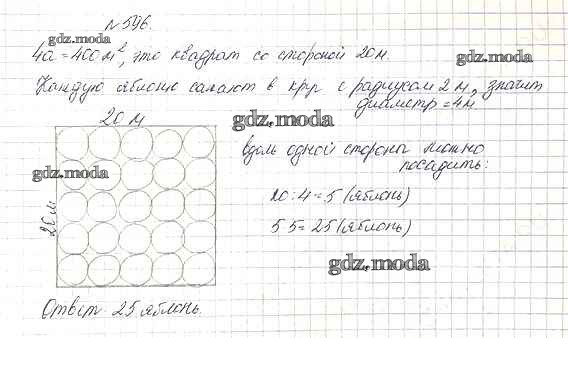 №596.
gdz.moda
4а = 400 м², это квадрат со стороной 20 м.
gdz.moda
Каждую яблоню сажают в круг с радиусом 2 м, значит
диаметр = 4 м
20 м
gdz.moda
вдоль одной стороны можно
посадить:
gdz.moda
20 : 4 = 5 (яблонь)
20 м
5 5 = 25 (яблонь)
gdz.moda
Ответ: 25 яблонь.